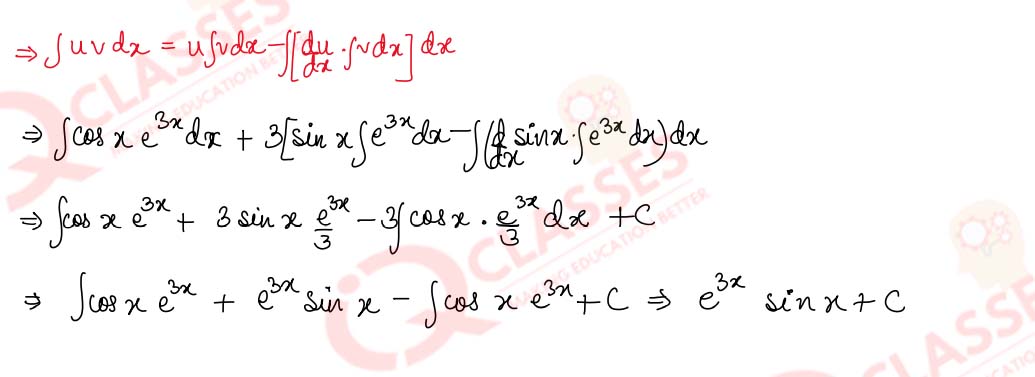 ⇒ ∫uvdx = u∫vdx-∫[du/dx.∫vdx]dx
⇒ ∫cos x e^3x dx + 3[sin x∫e^3x dx-∫(d/dx sinx.∫e^3x dx)dx
⇒ ∫cos x e^3x + 3 sin x e^3x/3 - 3∫cos x . e^3x/3 dx + C
⇒ ∫cos x e^3x + e^3x sin x - ∫cos x e^3x + C ⇒ e^3x sin x + C
IQ CLASSES
MAKING EDUCATION BETTER